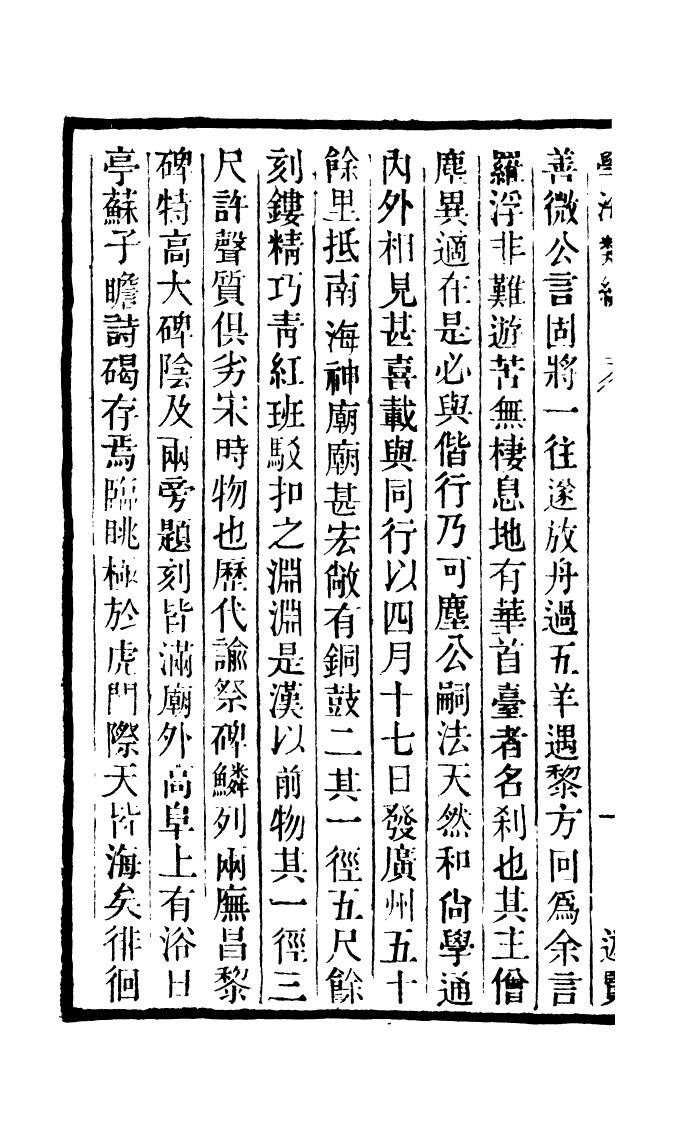 善微公言固將一往遂放舟過五羊遇黎方囘爲余言
羅浮非難遊苦無棲息地有華首臺者名刹也其主僧
塵異適在是必與偕行乃可塵公嗣法天然和尙學通
內外相見甚喜載與同行以四月十七日發廣州五十
餘里抵南海神廟廟甚宏敞有銅鼓二其一徑五尺餘
刻鏤精巧靑紅班駁扣之淵淵是漢以前物其一徑三
尺許聲質俱劣宋時物也歷代諭祭碑鱗列兩廡昌黎
碑特高大碑陰及兩旁題刻皆滿廟外高阜上有浴日
亭蘇子瞻詩碣存焉臨眺極於虎門際天皆海矣徘徊